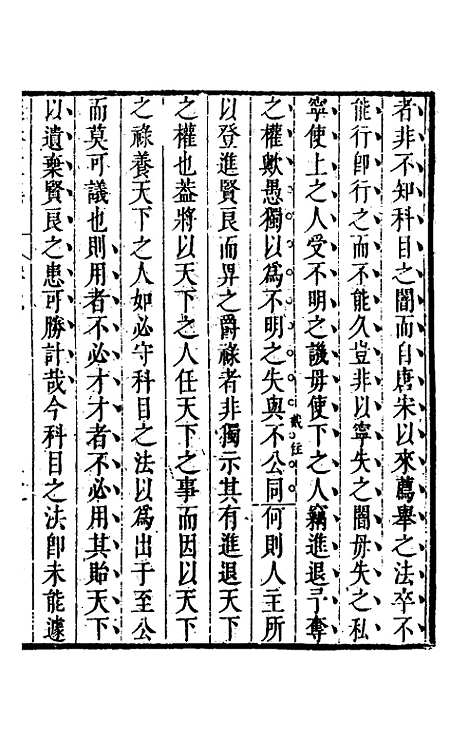 者非不知科目之闇而自唐宋以來薦舉之法卒不
能行卽行之而不能久豈非以寧失之闇毋失之私
寧使上之人受不明之譏毋使下之人竊進退予奪
之權歟愚獨以爲不明之失與不公同何則人主所
截住
以登進賢良而畀之爵祿者非獨示其有進退天下
之權也葢將以天下之人任天下之事而因以天下
之祿養天下之人如必守科目之法以爲出于至公
而莫可議也則用者不必才才者不必用其貽天下
以遺棄賢良之患可勝計哉今科目之法卽未能遽